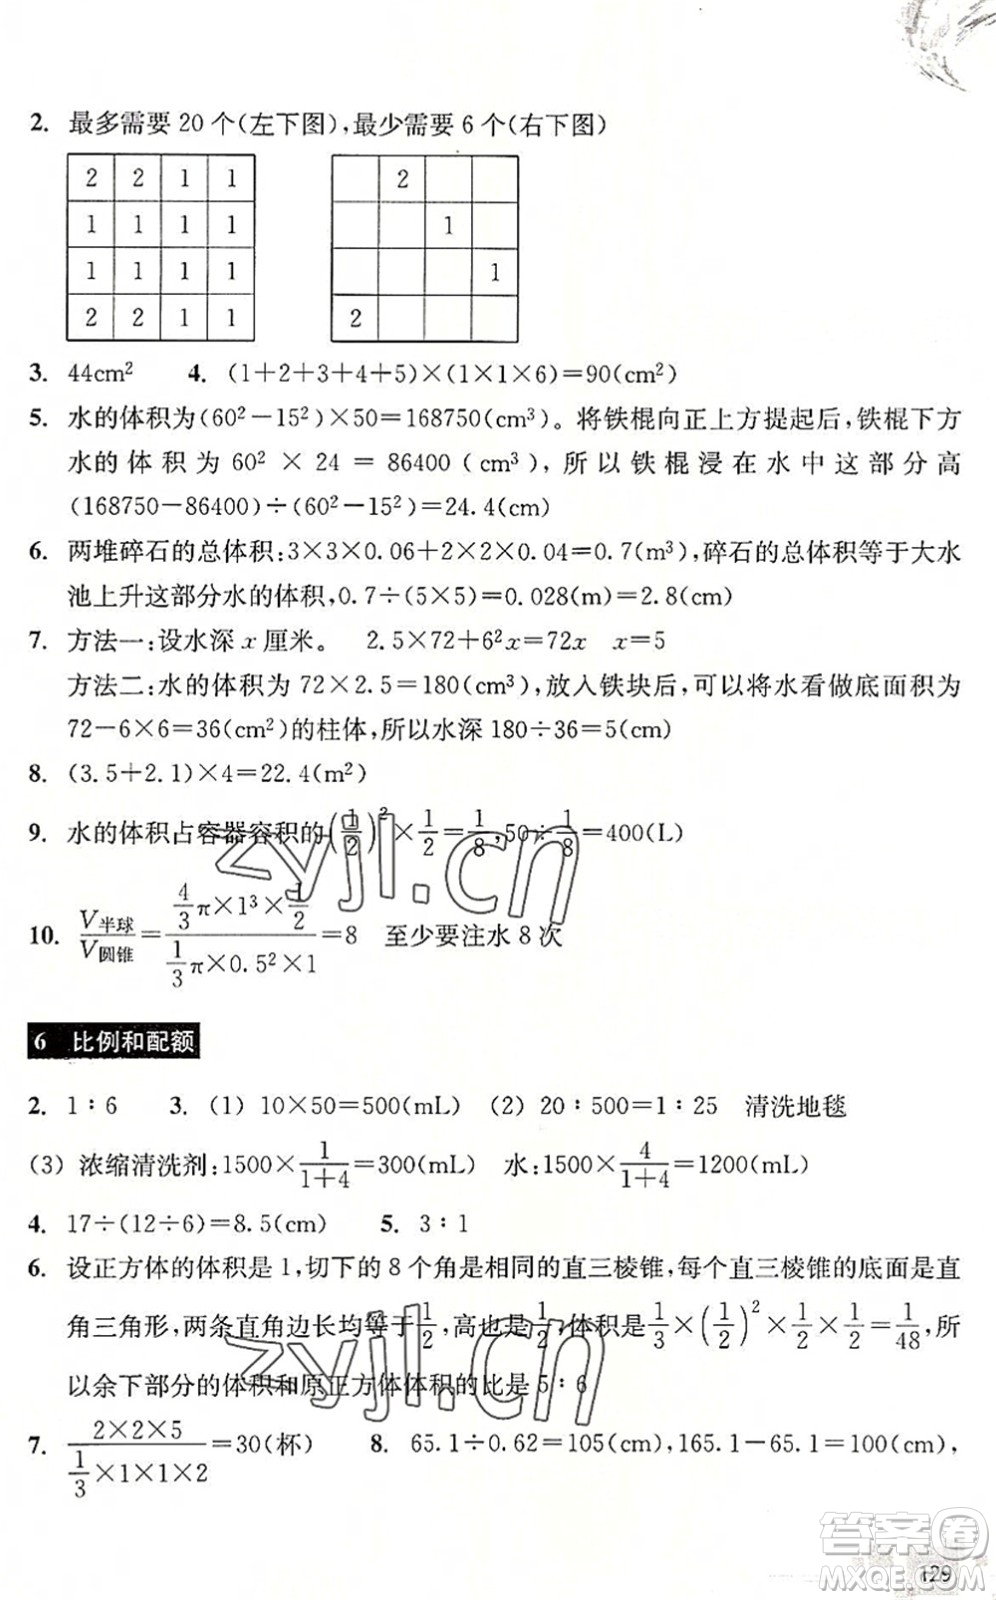 2. 最多需要 20 个(左下图),最少需要 6 个(右下图)
2 2 1 1
1 1 1 1
1 1 1 1
2 2 1 1
2
1
1
2
3. 44cm² 4. (1+2+3+4+5)×(1×1×6)=90(cm²)
5. 水的体积为(60²-15²)×50=168750(cm³)。将铁棍向正上方提起后,铁棍下方
水的体积为 60² × 24 = 86400 (cm³), 所以铁棍浸在水中这部分高
(168750-86400)÷(60²-15²)=24.4(cm)
6. 两堆碎石的总体积:3×3×0.06+2×2×0.04=0.7(m³),碎石的总体积等于大水
池上升这部分水的体积,0.7÷(5×5)=0.028(m)=2.8(cm)
7. 方法一:设水深 x 厘米。 2.5×72+6²x=72x x=5
方法二:水的体积为 72×2.5=180(cm³),放入铁块后,可以将水看做底面积为
72-6×6=36(cm²)的柱体,所以水深 180÷36=5(cm)
8. (3.5+2.1)×4=22.4(m²)
9. 水的体积占容器容积的(1/2)²×1/2=1/8,50÷1/8=400(L)
10. V半球/V圆锥=(4/3π×1³×1/2)/(1/3π×0.5²×1)=8 至少要注水 8 次
zyjl.cn
6 比例和配额
2. 1∶6 3. (1) 10×50=500(mL) (2) 20∶500=1∶25 清洗地毯
(3) 浓缩清洗剂:1500×1/(1+4)=300(mL) 水:1500×4/(1+4)=1200(mL)
4. 17÷(12÷6)=8.5(cm) 5. 3∶1
6. 设正方体的体积是 1,切下的 8 个角是相同的直三棱锥,每个直三棱锥的底面是直
角三角形,两条直角边长均等于1/2,高也是1/2,体积是1/3×(1/2)²×1/2×1/2=1/48,所
以余下部分的体积和原正方体体积的比是 5∶6
zyjl.cn
7. (2×2×5)/(1/3×1×1×2)=30(杯) 8. 65.1÷0.62=105(cm),165.1-65.1=100(cm),
答案圈
MXQE.COM
129